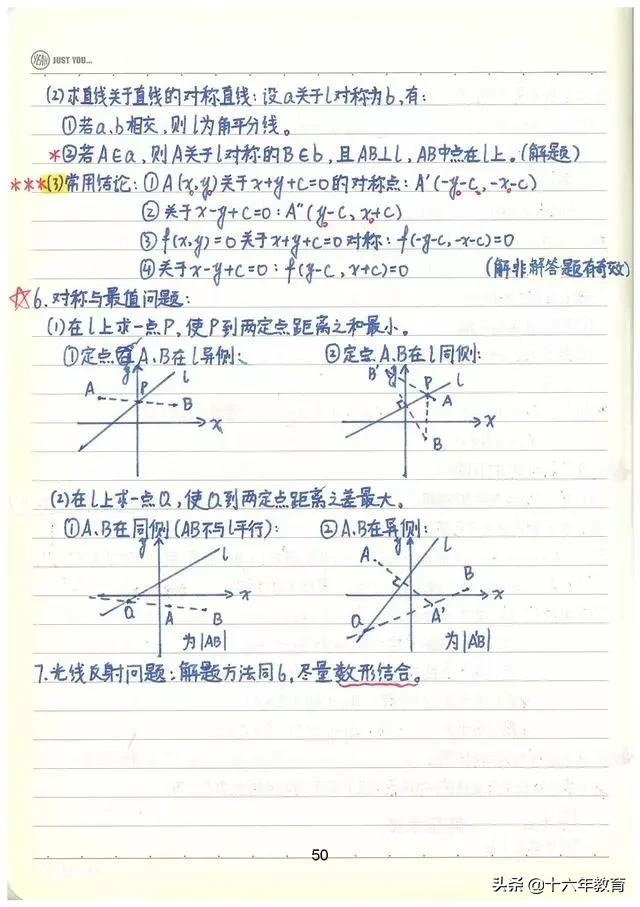 YEAH JUST YOU...
(2)求直线关于直线的对称直线:设a关于l对称为b,有:
①若a、b相交,则l为角平分线。
*②若A∈a,则A关于l对称的B∈b,且AB⊥l,AB中点在l上。(解题)
***(3)常用结论:①A(x,y)关于x+y+C=0的对称点:A'(-y-C,-x-C)
②关于x-y+C=0:A''(y-C,x+C)
③f(x,y)=0关于x+y+C=0对称:f(-y-C,-x-C)=0
④关于x-y+C=0:f(y-C,x+C)=0 (解非解答题有奇效)
☆6.对称与最值问题:
(1)在l上求一点P,使P到两定点距离之和最小。
①定点A、B在l异侧: ②定点A、B在l同侧:
y l A P B x
B' y P l A x B
(2)在l上求一点Q,使Q到两定点距离之差最大。
①A、B在同侧(AB不与l平行): ②A、B在异侧:
y l x Q A B 为|AB|
A y l B x A' Q 为|A'B|
7.光线反射问题:解题方法同6,尽量数形结合。
50
头条@十六年教育